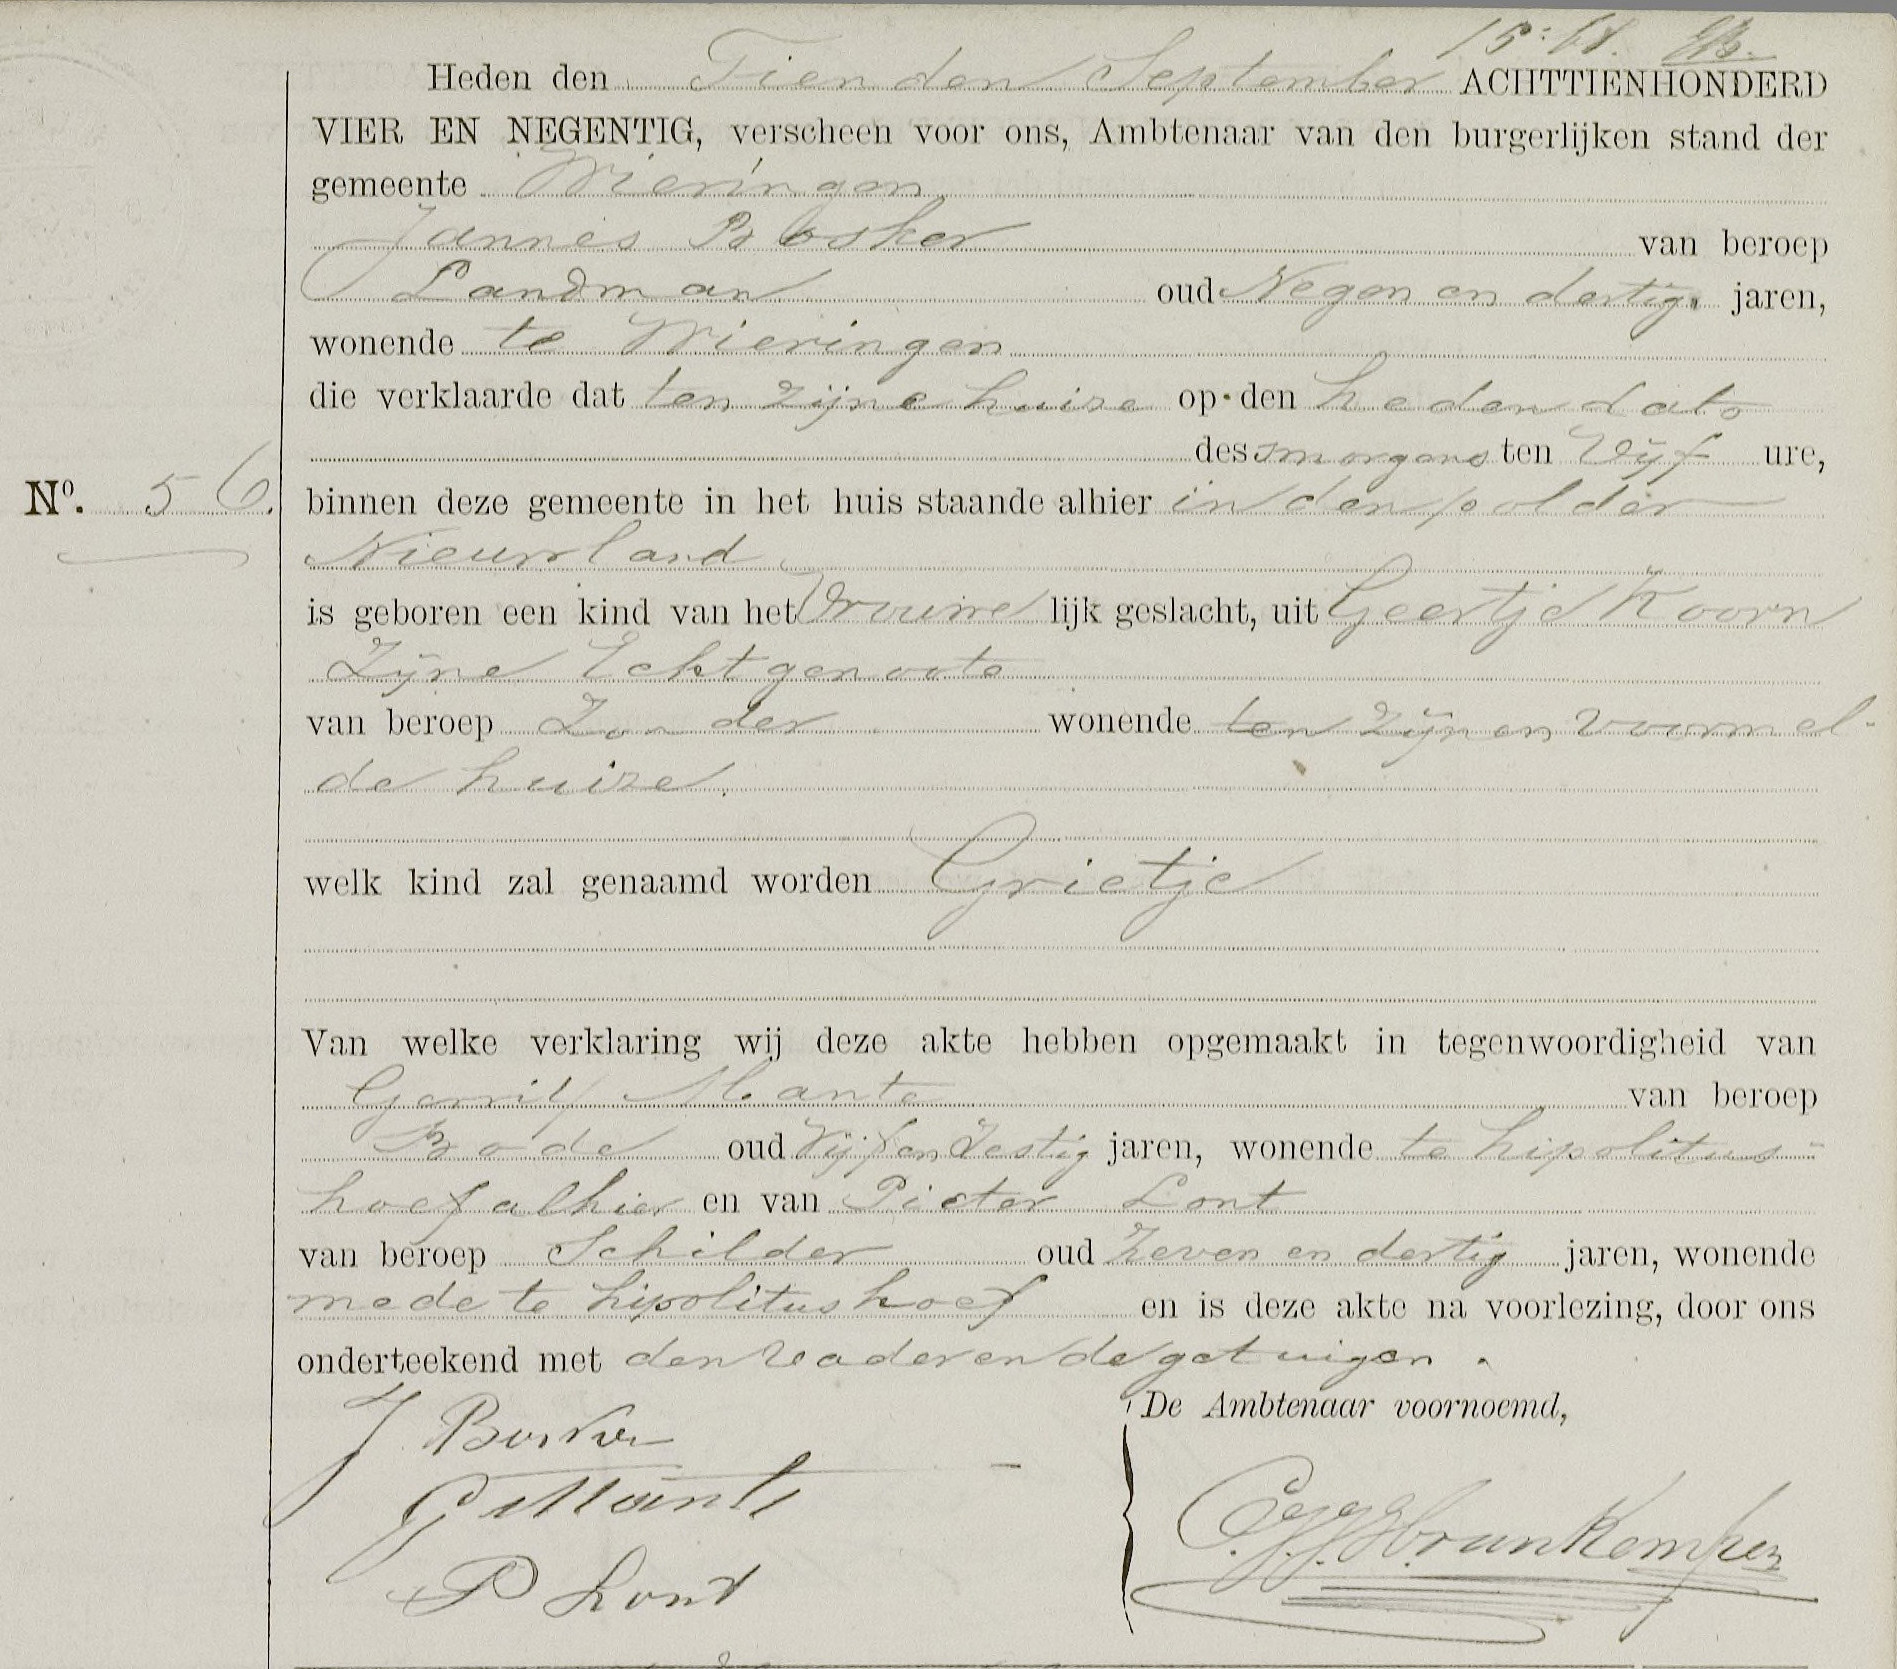 15:68.
Heden den Tienden September ACHTTIENHONDERD
VIER EN NEGENTIG, verscheen voor ons, Ambtenaar van den burgerlijken stand der
gemeente Wieringen
Jannes Bosker van beroep
Landman oud Negen en dertig, jaren,
wonende te Wieringen
die verklaarde dat ten zijne huize op den heden dato
des smorgens ten Vijf ure,
No. 56. binnen deze gemeente in het huis staande alhier in den polder
Nieuwland
is geboren een kind van het Vrouwe lijk geslacht, uit Geertje Koorn
Zijne Echtgenoote
van beroep Zonder wonende ten zijnen voormel-
de huize.
welk kind zal genaamd worden Grietje
Van welke verklaring wij deze akte hebben opgemaakt in tegenwoordigheid van
Gerrit Mante van beroep
Bode oud Vijf en Zestig jaren, wonende te hipolitus-
hoef alhier en van Pieter Lont
van beroep Schilder oud Zeven en dertig jaren, wonende
mede te hipolitushoef en is deze akte na voorlezing, door ons
onderteekend met den Vader en de getuigen.
De Ambtenaar voornoemd,
J Bosker
G Mante
P Lont